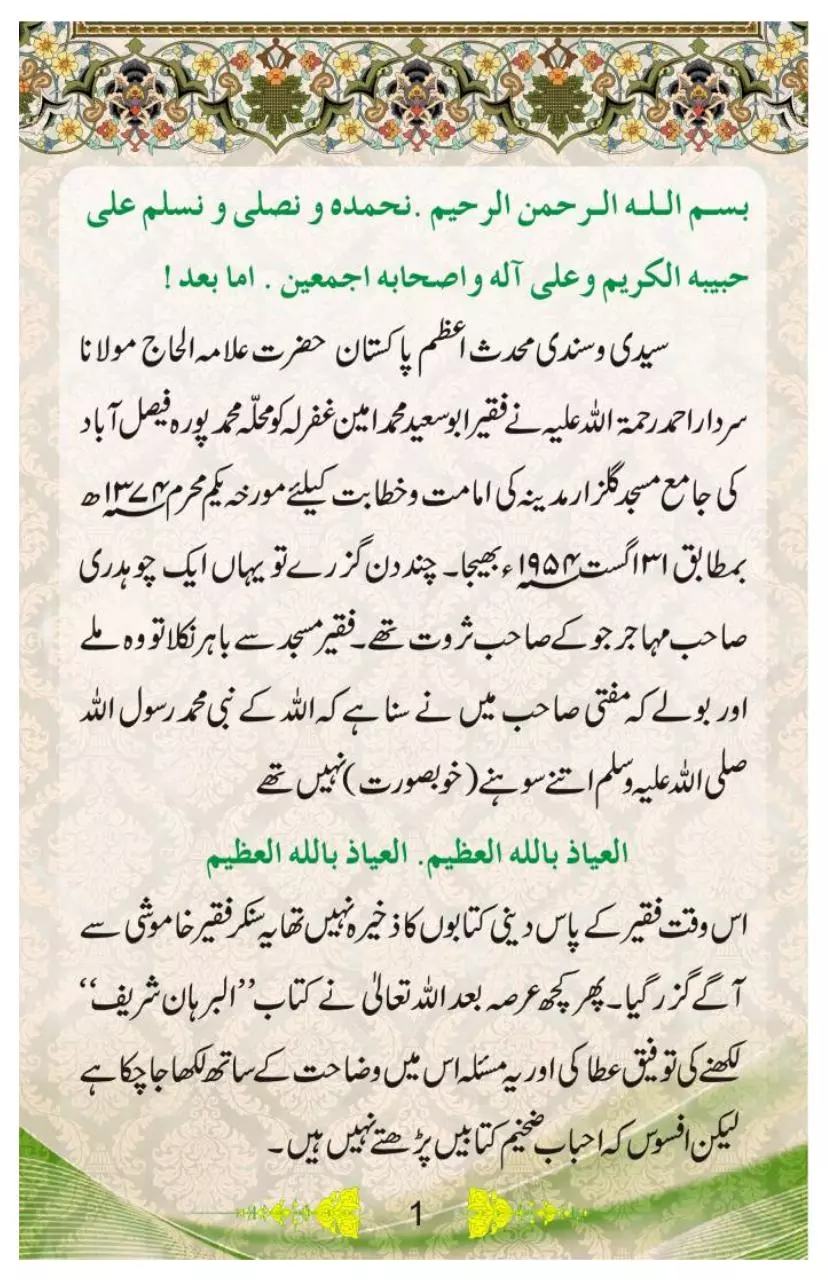 بسم الله الرحمن الرحيم .نحمده و نصلى و نسلم على
حبيبه الكريم وعلى آله واصحابه اجمعين . اما بعد !
سیدی وسندی محدث اعظم پاکستان حضرت علامہ الحاج مولانا
سردار احمد رحمۃ اللہ علیہ نے فقیر ابوسعید محمد امین غفرلہ کو محلّہ محمد پورہ فیصل آباد
کی جامع مسجد گلزار مدینہ کی امامت و خطابت کیلئے مورخہ یکم محرم ۱۳۷۴ھ
بمطابق ۳۱ اگست ۱۹۵۴ء بھیجا۔ چند دن گزرے تو یہاں ایک چوہدری
صاحب مہاجر جو کے صاحب ثروت تھے۔ فقیر مسجد سے باہر نکلا تو وہ ملے
اور بولے کہ مفتی صاحب میں نے سنا ہے کہ اللہ کے نبی محمد رسول اللہ
صلی اللہ علیہ وسلم اتنے سوہنے (خوبصورت) نہیں تھے
العياذ بالله العظيم. العياذ بالله العظيم
اس وقت فقیر کے پاس دینی کتابوں کا ذخیرہ نہیں تھا یہ سنکر فقیر خاموشی سے
آگے گزر گیا۔ پھر کچھ عرصہ بعد اللہ تعالیٰ نے کتاب ’’البرہان شریف‘‘
لکھنے کی توفیق عطا کی اور یہ مسئلہ اس میں وضاحت کے ساتھ لکھا جا چکا ہے
لیکن افسوس کہ احباب ضخیم کتابیں پڑھتے نہیں ہیں۔
1